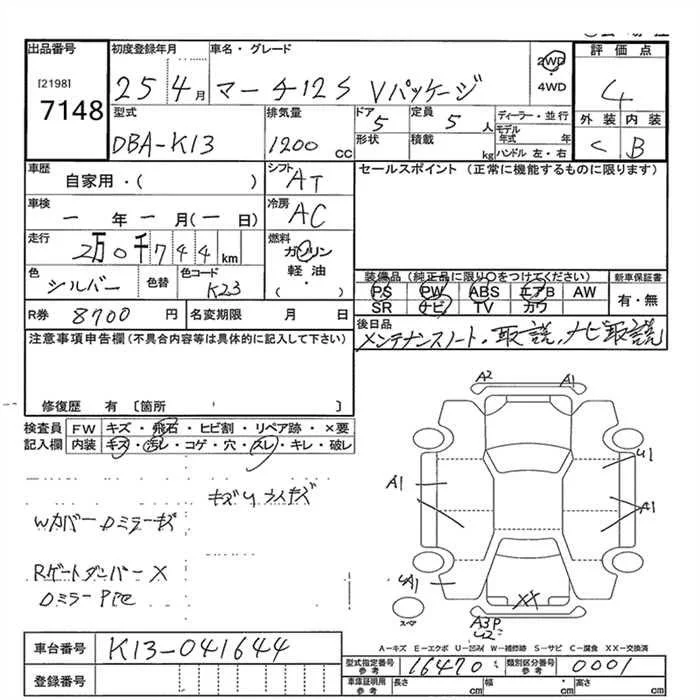 出品番号 初度登録年月 車名・グレード 2WD ・ 4WD 評価点
[2198]
7148 25 4月 マーチ12S Vパッケージ 4
型式 排気量 ドア 定員 ディーラー・並行 外装 内装
DBA-K13 1200 CC 5 5人 モデル年式 年 C B
形状 積載 kg ハンドル 左・右
車歴 シフト セールスポイント (正常に機能するものに限ります)
自家用・( ) AT
車検 冷房
ー年ー月(ー日) AC
走行 燃料
2万0千744km ガソリン
軽油・
( )
色 色替 色コード
シルバー K23
装備品 (純正品に限り○をつけてください) 新車保証書
PS PW ABS エアB AW 有・無
SR ナビ TV カワ
R券 8700円 名変期限 月 日
後日品
メンテナンスノート、取説、ナビ取説
注意事項申告欄(不具合内容等は具体的に記入して下さい)
修復歴 有 〔箇所 〕
検査員 FW キズ・飛石・ヒビ割・リペア跡・×要
記入欄 内装 キズ・汚レ・コゲ・穴・スレ・キレ・破レ
Wカバー Dミラーキズ
Rゲートダンパー X
A2 A1
A1 A1
A1
XX
スペア
A3P
U2
A-キズ E-エクボ U-凹み W-補修跡 S-サビ C-腐食 XX-交換済
車台番号 K13-041644
登録番号
型式指定番号 参考 16470 類別区分番号 参考 0001
車庫証明用 参考 長さ cm 幅 cm 高さ cm